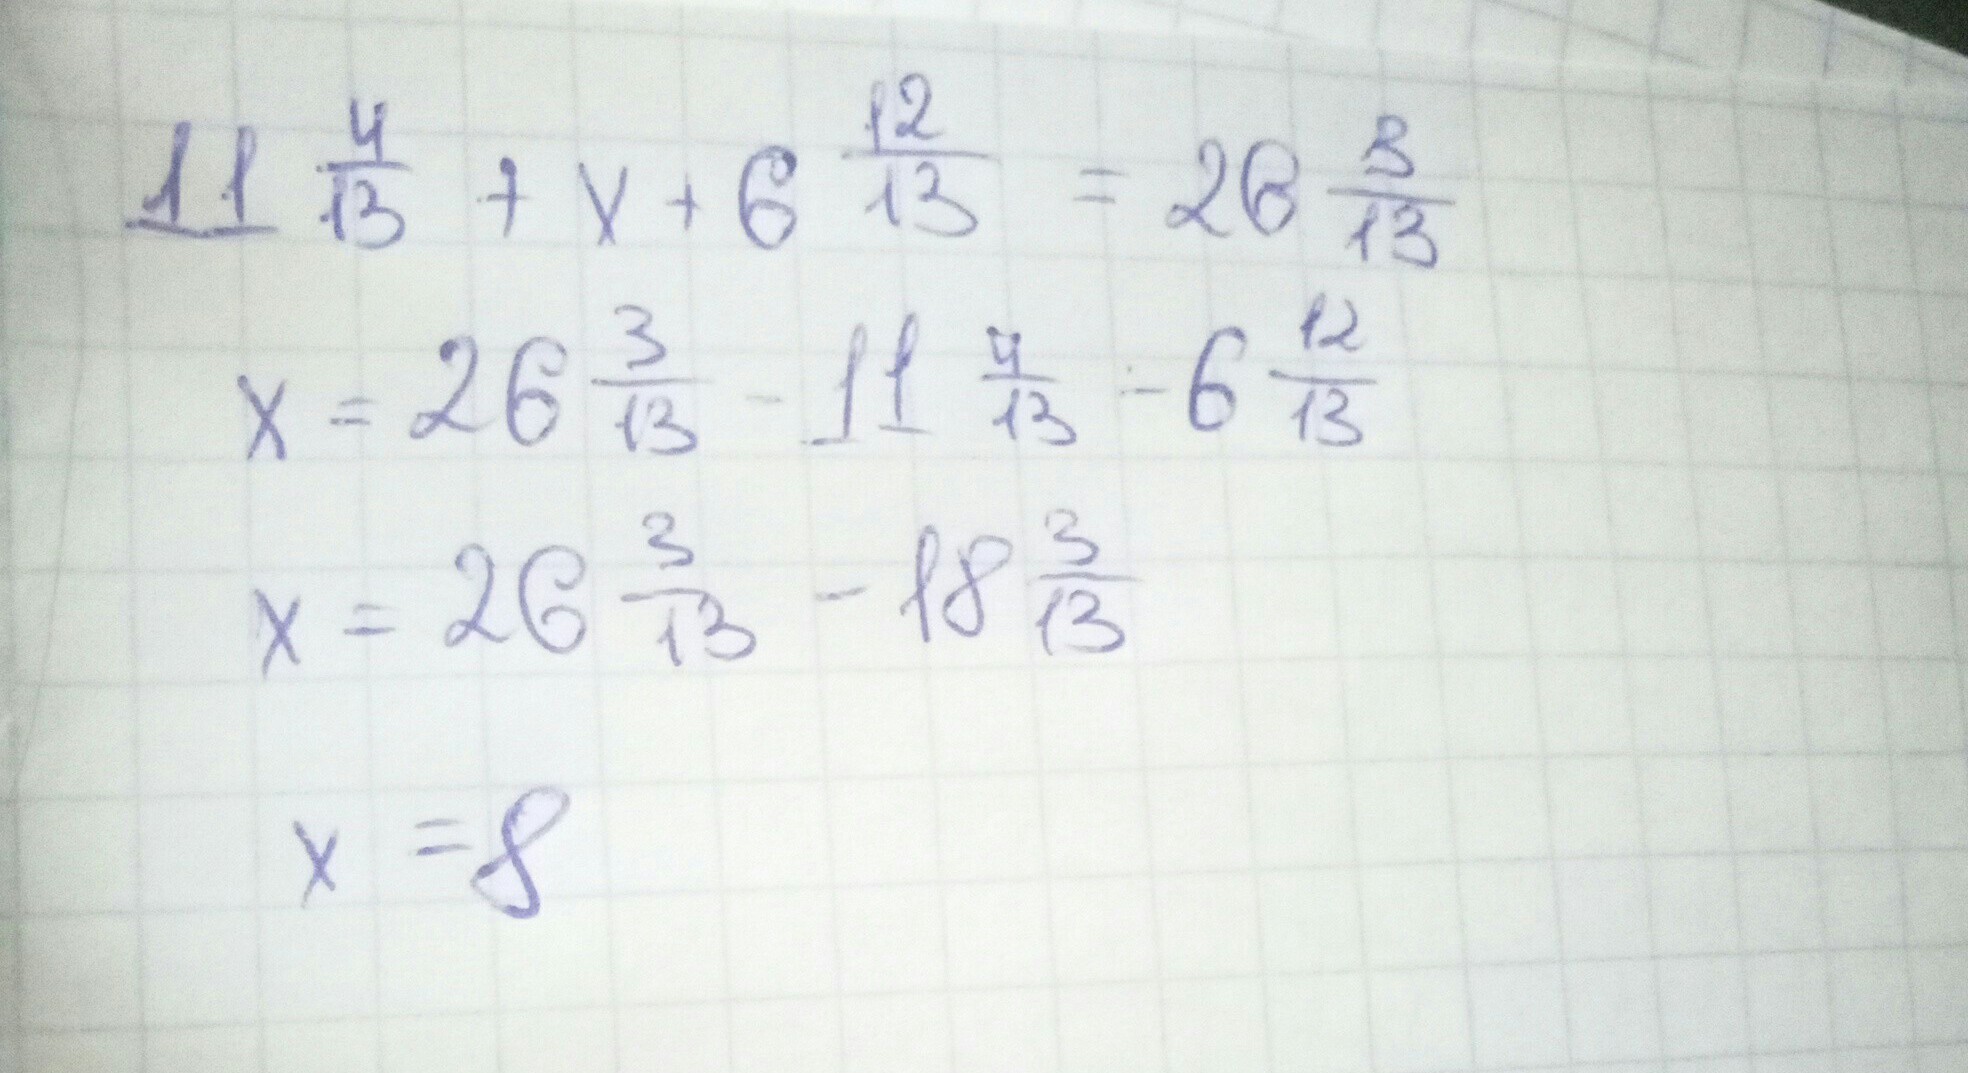 11 4/13 + x + 6 12/13 = 26 3/13
x = 26 3/13 - 11 4/13 - 6 12/13
x = 26 3/13 - 18 3/13
x = 8